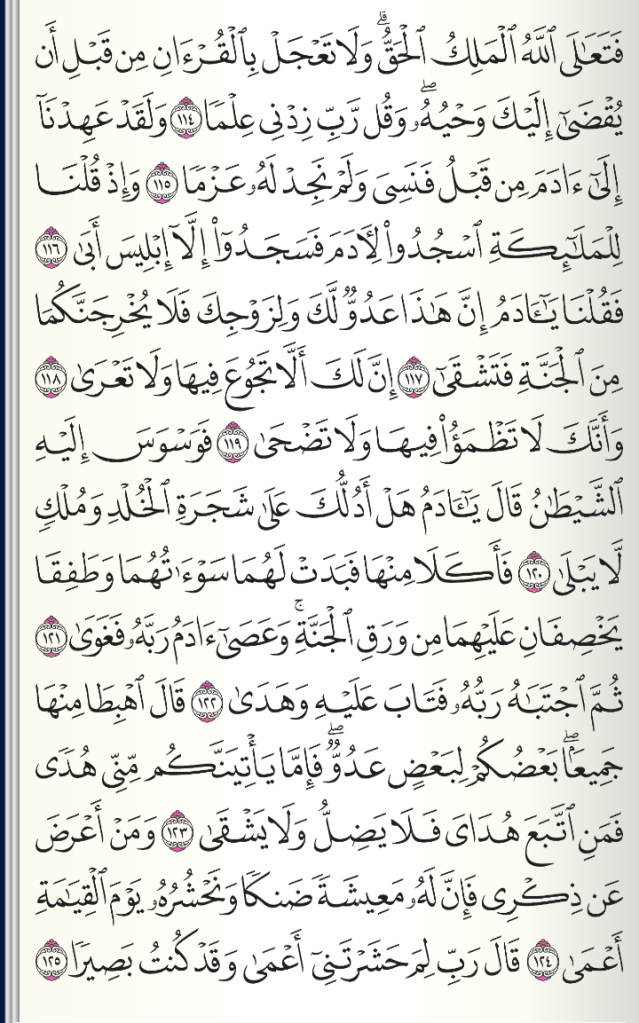 فَتَعَٰلَى ٱللَّهُ ٱلۡمَلِكُ ٱلۡحَقُّۗ وَلَا تَعۡجَلۡ بِٱلۡقُرۡءَانِ مِن قَبۡلِ أَن
يُقۡضَىٰٓ إِلَيۡكَ وَحۡيُهُۥۖ وَقُل رَّبِّ زِدۡنِي عِلۡمٗا ١١٤ وَلَقَدۡ عَهِدۡنَآ
إِلَىٰٓ ءَادَمَ مِن قَبۡلُ فَنَسِيَ وَلَمۡ نَجِدۡ لَهُۥ عَزۡمٗا ١١٥ وَإِذۡ قُلۡنَا
لِلۡمَلَٰٓئِكَةِ ٱسۡجُدُواْ لِأٓدَمَ فَسَجَدُوٓاْ إِلَّآ إِبۡلِيسَ أَبَىٰ ١١٦
فَقُلۡنَا يَٰٓـَٔادَمُ إِنَّ هَٰذَا عَدُوّٞ لَّكَ وَلِزَوۡجِكَ فَلَا يُخۡرِجَنَّكُمَا
مِنَ ٱلۡجَنَّةِ فَتَشۡقَىٰٓ ١١٧ إِنَّ لَكَ أَلَّا تَجُوعَ فِيهَا وَلَا تَعۡرَىٰ ١١٨
وَأَنَّكَ لَا تَظۡمَؤُاْ فِيهَا وَلَا تَضۡحَىٰ ١١٩ فَوَسۡوَسَ إِلَيۡهِ
ٱلشَّيۡطَٰنُ قَالَ يَٰٓـَٔادَمُ هَلۡ أَدُلُّكَ عَلَىٰ شَجَرَةِ ٱلۡخُلۡدِ وَمُلۡكٖ
لَّا يَبۡلَىٰ ١٢٠ فَأَكَلَا مِنۡهَا فَبَدَتۡ لَهُمَا سَوۡءَٰتُهُمَا وَطَفِقَا
يَخۡصِفَانِ عَلَيۡهِمَا مِن وَرَقِ ٱلۡجَنَّةِۚ وَعَصَىٰٓ ءَادَمُ رَبَّهُۥ فَغَوَىٰ ١٢١
ثُمَّ ٱجۡتَبَٰهُ رَبُّهُۥ فَتَابَ عَلَيۡهِ وَهَدَىٰ ١٢٢ قَالَ ٱهۡبِطَا مِنۡهَا
جَمِيعَۢاۖ بَعۡضُكُمۡ لِبَعۡضٍ عَدُوّٞۖ فَإِمَّا يَأۡتِيَنَّكُم مِّنِّي هُدٗى
فَمَنِ ٱتَّبَعَ هُدَايَ فَلَا يَضِلُّ وَلَا يَشۡقَىٰ ١٢٣ وَمَنۡ أَعۡرَضَ
عَن ذِكۡرِي فَإِنَّ لَهُۥ مَعِيشَةٗ ضَنكٗا وَنَحۡشُرُهُۥ يَوۡمَ ٱلۡقِيَٰمَةِ
أَعۡمَىٰ ١٢٤ قَالَ رَبِّ لِمَ حَشَرۡتَنِيٓ أَعۡمَىٰ وَقَدۡ كُنتُ بَصِيرٗا ١٢٥